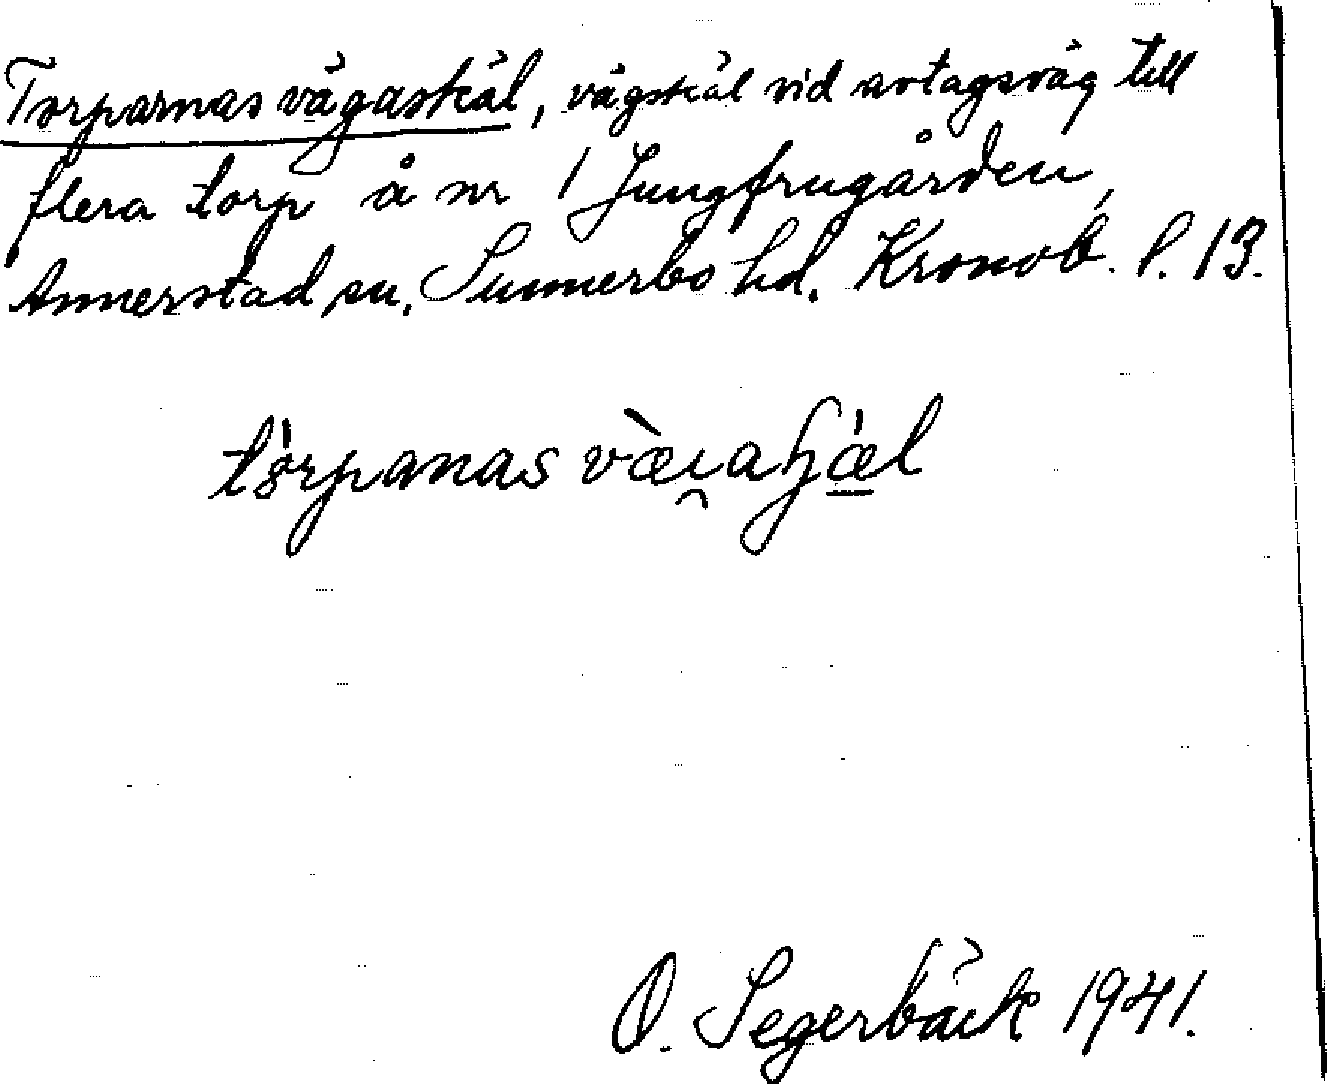 Torparnas vägaskäl, vägskäl vid avtagsväg till
flera torp å nr 1 Jungfrugården,
Annerstad sn. Sunnerbo hd. Kronob. l. 13.
O. Segerbäck 1941.